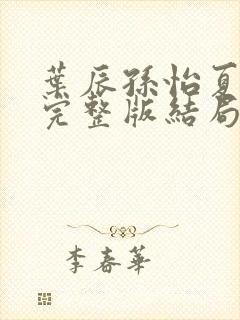 葉辰孫怡夏
完整版結局
李春華